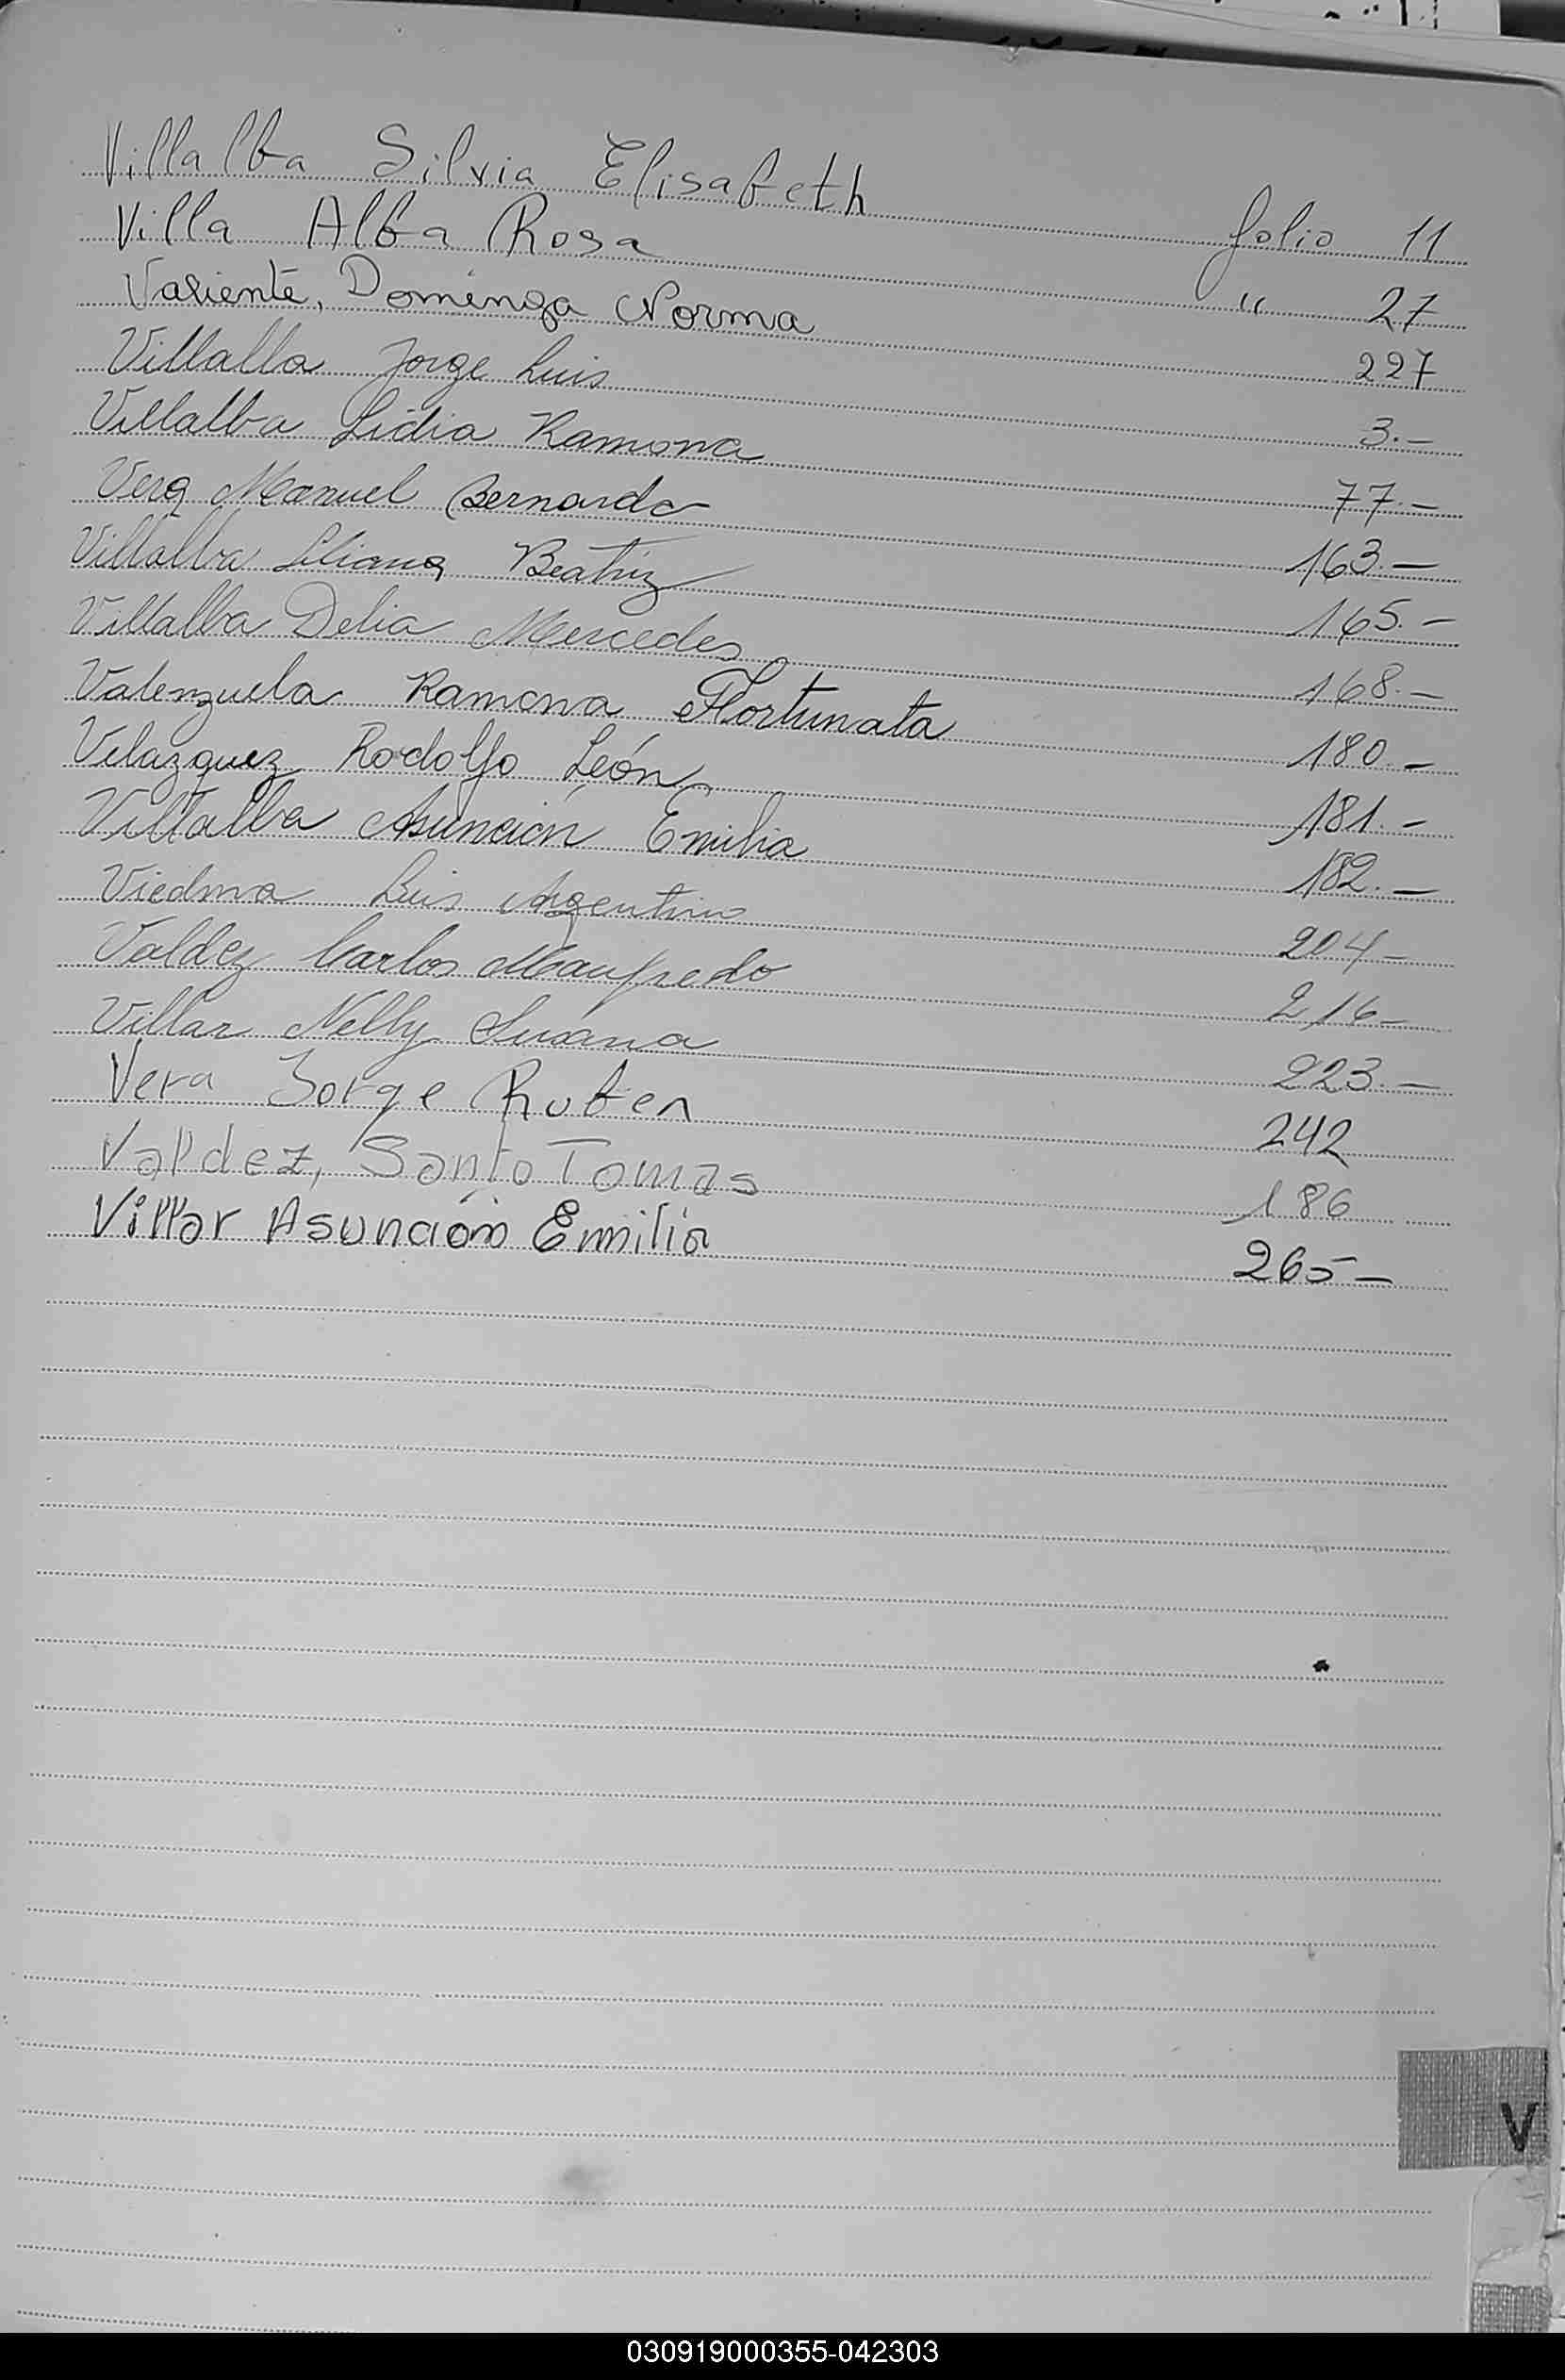 Villalba Silvia Elisabeth folio 11
Villa Alba Rosa " 27
Valiente, Dominga Norma 227
Villalba Jorge Luis 3.-
Villalba Lidia Ramona 77.-
Vera Manuel Bernardo 163.-
Villalba Liliana Beatriz 165.-
Villalba Delia Mercedes 168.-
Valenzuela Ramona Fortunata 180.-
Velazquez Rodolfo León 181.-
Villalba Asunción Emilia 182.-
Viedma Luis Argentino 204-
Valdez Carlos Manfredo 216-
Villar Nelly Susana 223.-
Vera Jorge Ruben 242
Valdez, Santo Tomas 186
Villar Asunción Emilia 265-
V
030919000355-042303